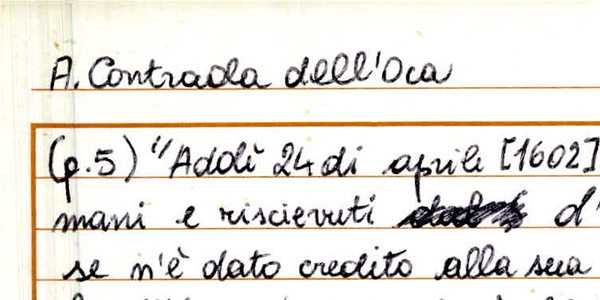 A. Contrada dell'Oca
(p. 5) "Addì 24 di aprile [1602]
mani e riscievuti d'
se n'è dato credito alla sua